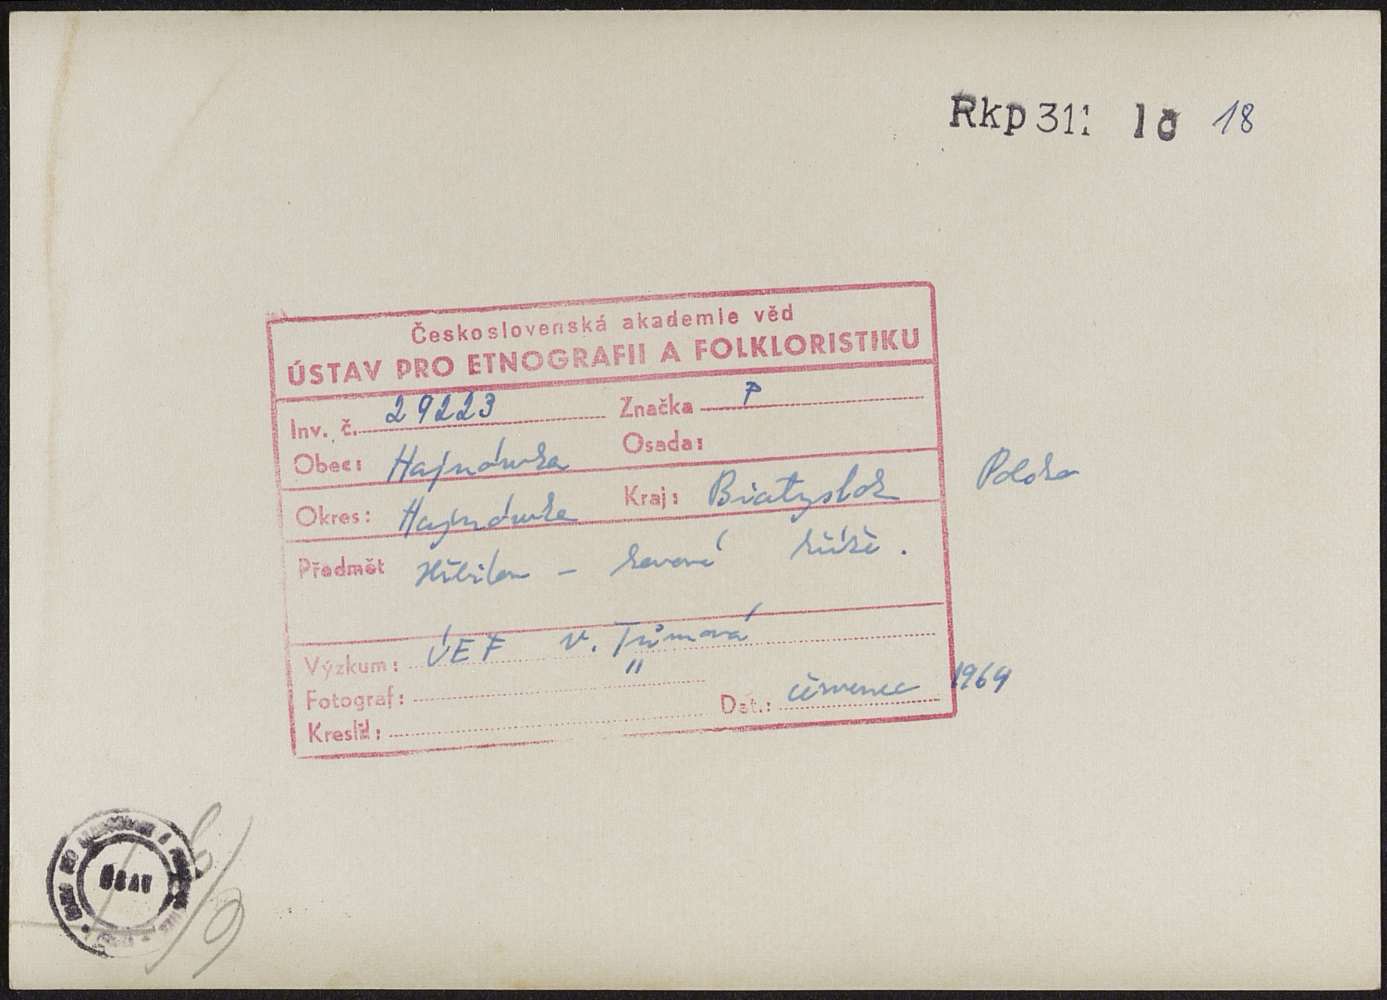 Rkp 311 18
Československá akademie věd
ÚSTAV PRO ETNOGRAFII A FOLKLORISTIKU
Inv. č. 29223 Značka P
Obec: Hajnówka Osada:
Okres: Hajnówka Kraj: Białystok Polsko
Předmět Hřbitov – kovové kříže.
Výzkum: ÚEF V. Tůmová
Fotograf: "
Kreslil: Dat.: červenec 1969
ČSAV